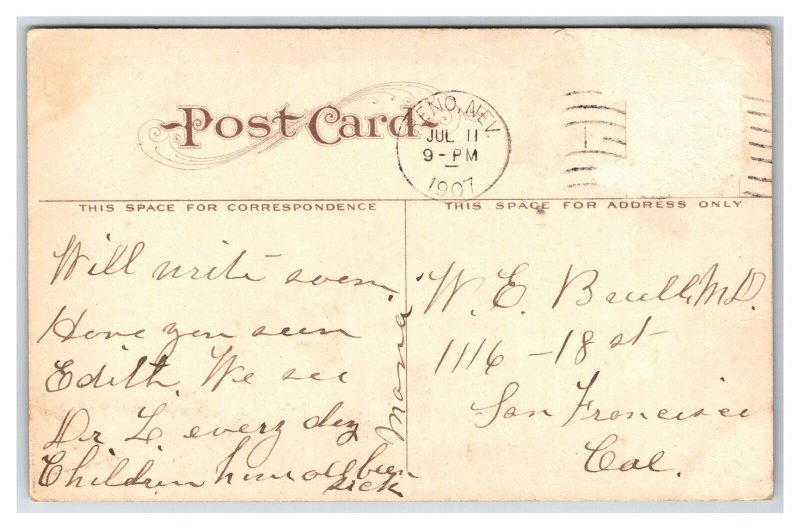 Post Card
RENO, NEV.
JUL 11
9-PM
1907
THIS SPACE FOR CORRESPONDENCE
THIS SPACE FOR ADDRESS ONLY
Will write soon.
Have you seen
Edith. We see
Dr L. every day
Children have all been
sick
Mona
W. E. M.D.
1116 - 18 st
San Francisco
Cal.